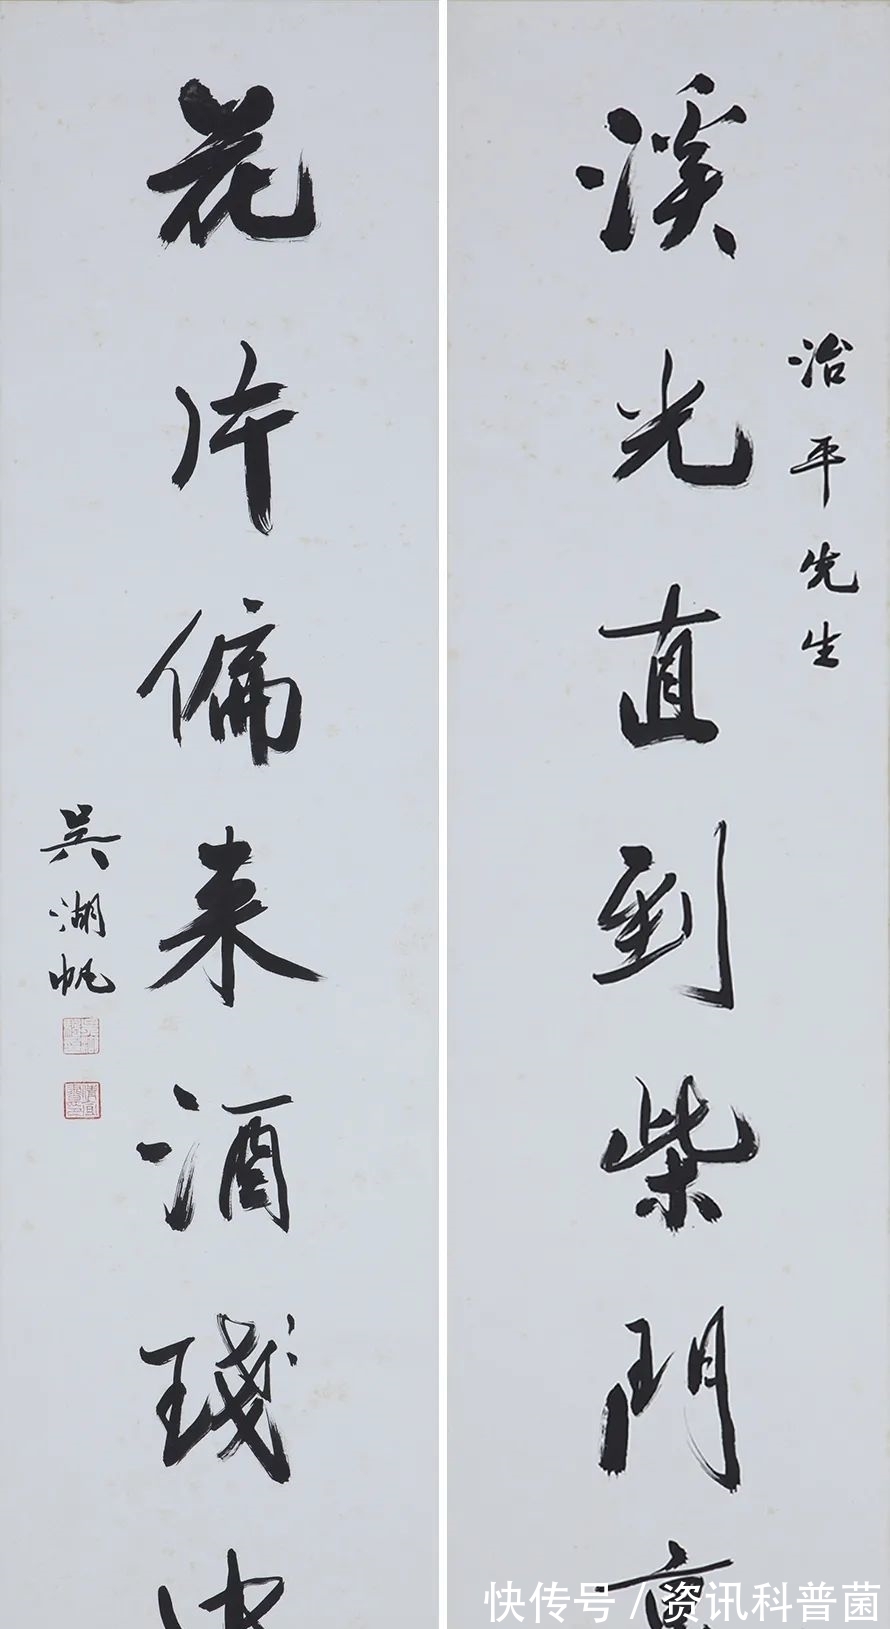 治平先生
溪光直到柴門
花片偏来酒琖
吴湖帆
快传号 / 资讯科普菌